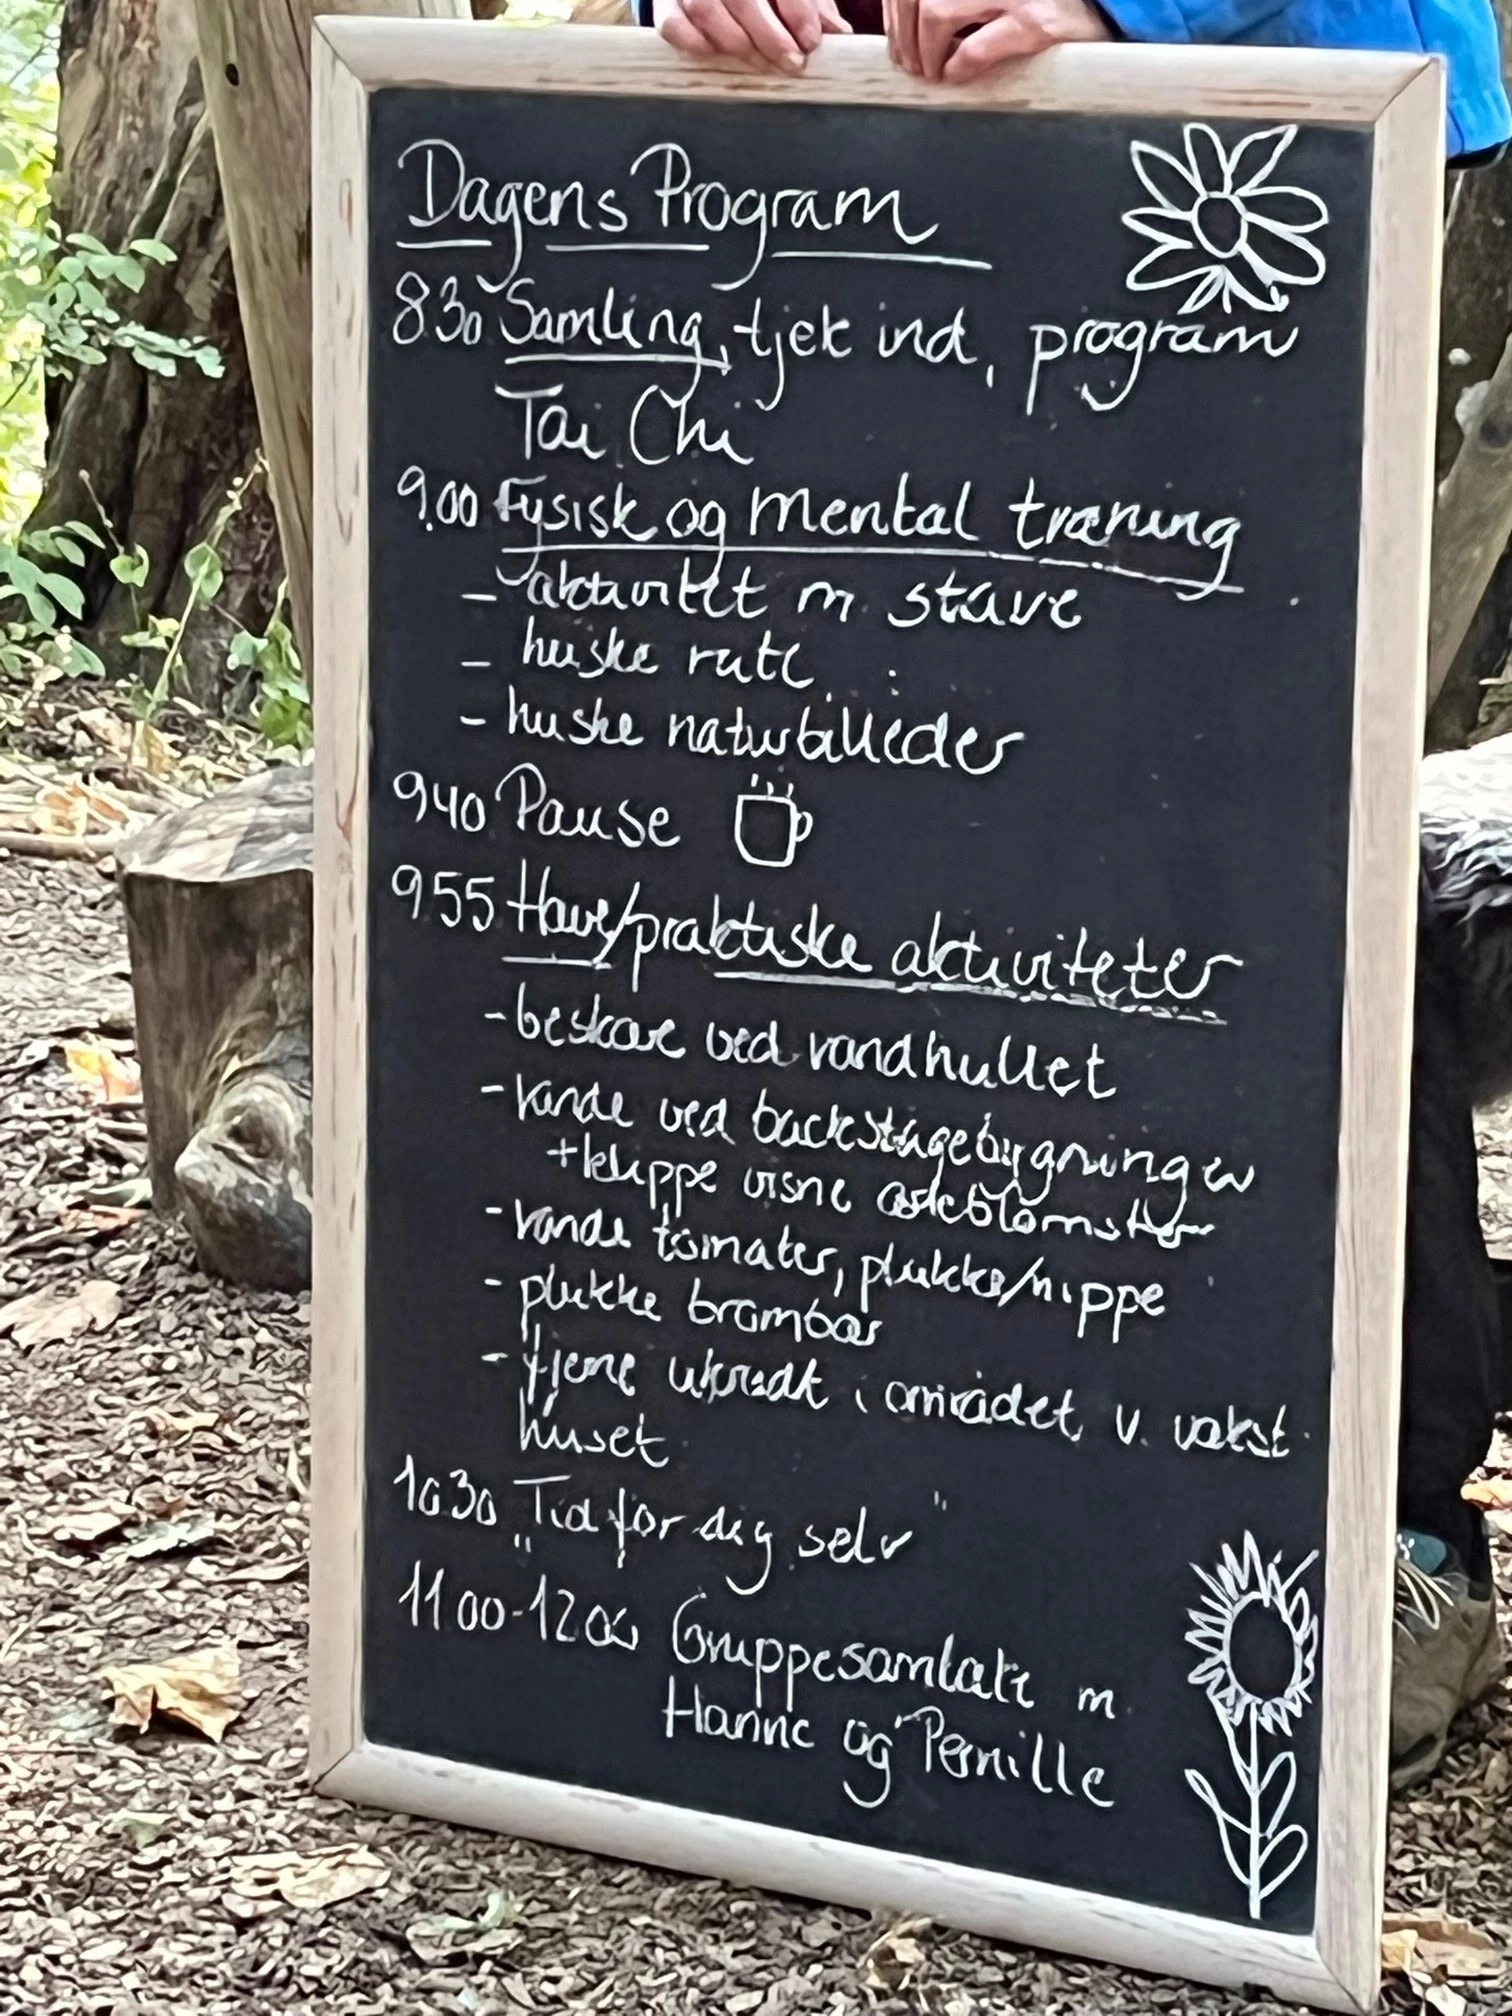 Dagens Program
8.30 Samling, tjek ind, program
Tai Chi
9.00 Fysisk og mental træning
- aktivitet m stave
- huske rute
- huske naturbilleder
940 Pause
955 Have/praktiske aktiviteter
- beskære ved vandhullet
- vande ved backstagebygningen
+ klippe visne asteblomster
- vande tomater, plukke/nippe
- plukke brombær
- fjerne ukrudt i området v. vækst
huset
1030 "Tid for dig selv"
11 00-12 00 Gruppesamtale m
Hanne og Pernille